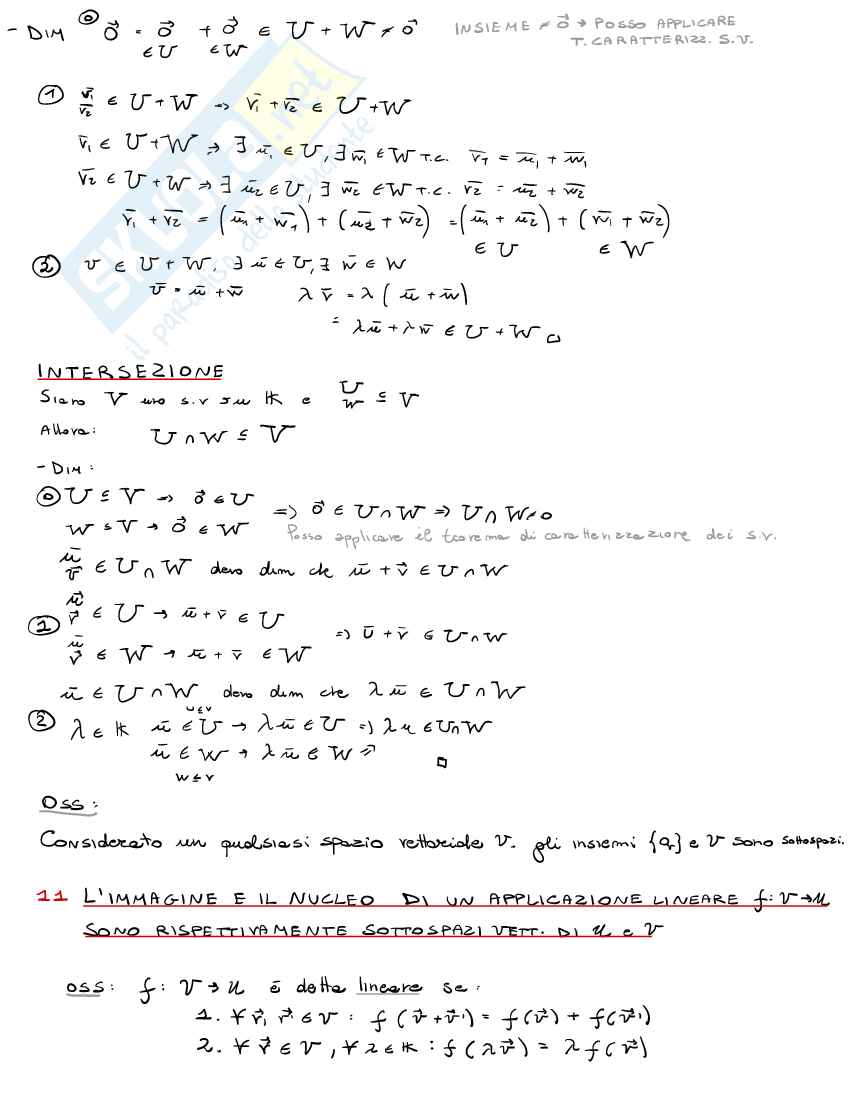 - DIM ⓪ 0⃗ = 0⃗ + 0⃗ ∈ U + W ≠ 0⃗ INSIEME ≠ 0⃗ → POSSO APPLICARE
∈U ∈W T. CARATTERIZZ. S.V.
① v̄₁ v̄₂ ∈ U+W => v̄₁ + v̄₂ ∈ U+W
v̄₁ ∈ U+W => ∃ ū₁ ∈ U, ∃ w̄₁ ∈ W T.C. v̄₁ = ū₁ + w̄₁
v̄₂ ∈ U+W => ∃ ū₂ ∈ U, ∃ w̄₂ ∈ W T.C. v̄₂ = ū₂ + w̄₂
v̄₁ + v̄₂ = (ū₁ + w̄₁) + (ū₂ + w̄₂) = (ū₁ + ū₂) + (w̄₁ + w̄₂)
∈ U ∈ W
② v ∈ U + W. ∃ ū ∈ U, ∃ w̄ ∈ W
v̄ = ū + w̄ λ v̄ = λ ( ū + w̄ )
= λū + λw̄ ∈ U + W □
INTERSEZIONE
Siano V uno s.v su K e U W ⊆ V
Allora: U ∩ W ≤ V
- DIM :
⓪ U ≤ V => 0⃗ ∈ U => 0⃗ ∈ U ∩ W => U ∩ W ≠ 0
W ≤ V → 0⃗ ∈ W Posso applicare il teorema di caratterizzazione dei s.v.
ū v̄ ∈ U ∩ W devo dim che ū + v̄ ∈ U ∩ W
① u⃗ v⃗ ∈ U → ū + v̄ ∈ U => ū + v̄ ∈ U ∩ W
ū v⃗ ∈ W → ū + v̄ ∈ W
ū ∈ U ∩ W devo dim che λ ū ∈ U ∩ W
U≤V
② λ ∈ K ū ∈ U → λū ∈ U => λu ∈ U∩W
ū ∈ W → λ ū ∈ W □
W ≤ V
OSS :
Considerato un qualsiasi spazio vettoriale V. gli insiemi {0ᵥ} e V sono sottospazi.
11 L'IMMAGINE E IL NUCLEO DI UN APPLICAZIONE LINEARE f: V → U
SONO RISPETTIVAMENTE SOTTOSPAZI VETT. DI U e V
OSS : f : V → U è detta lineare se :
1. ∀ v⃗, v⃗' ∈ V : f (v⃗ + v⃗') = f(v⃗) + f(v⃗')
2. ∀ v⃗ ∈ V, ∀ λ ∈ K : f (λv⃗) = λ f(v⃗)
skuola.net
il paradiso dello studente